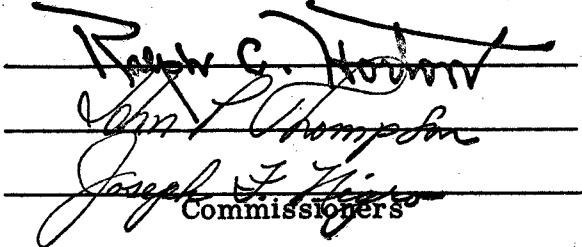 Ralph C. Horton
John P Thompson
Joseph F. Nigro
Commissioners